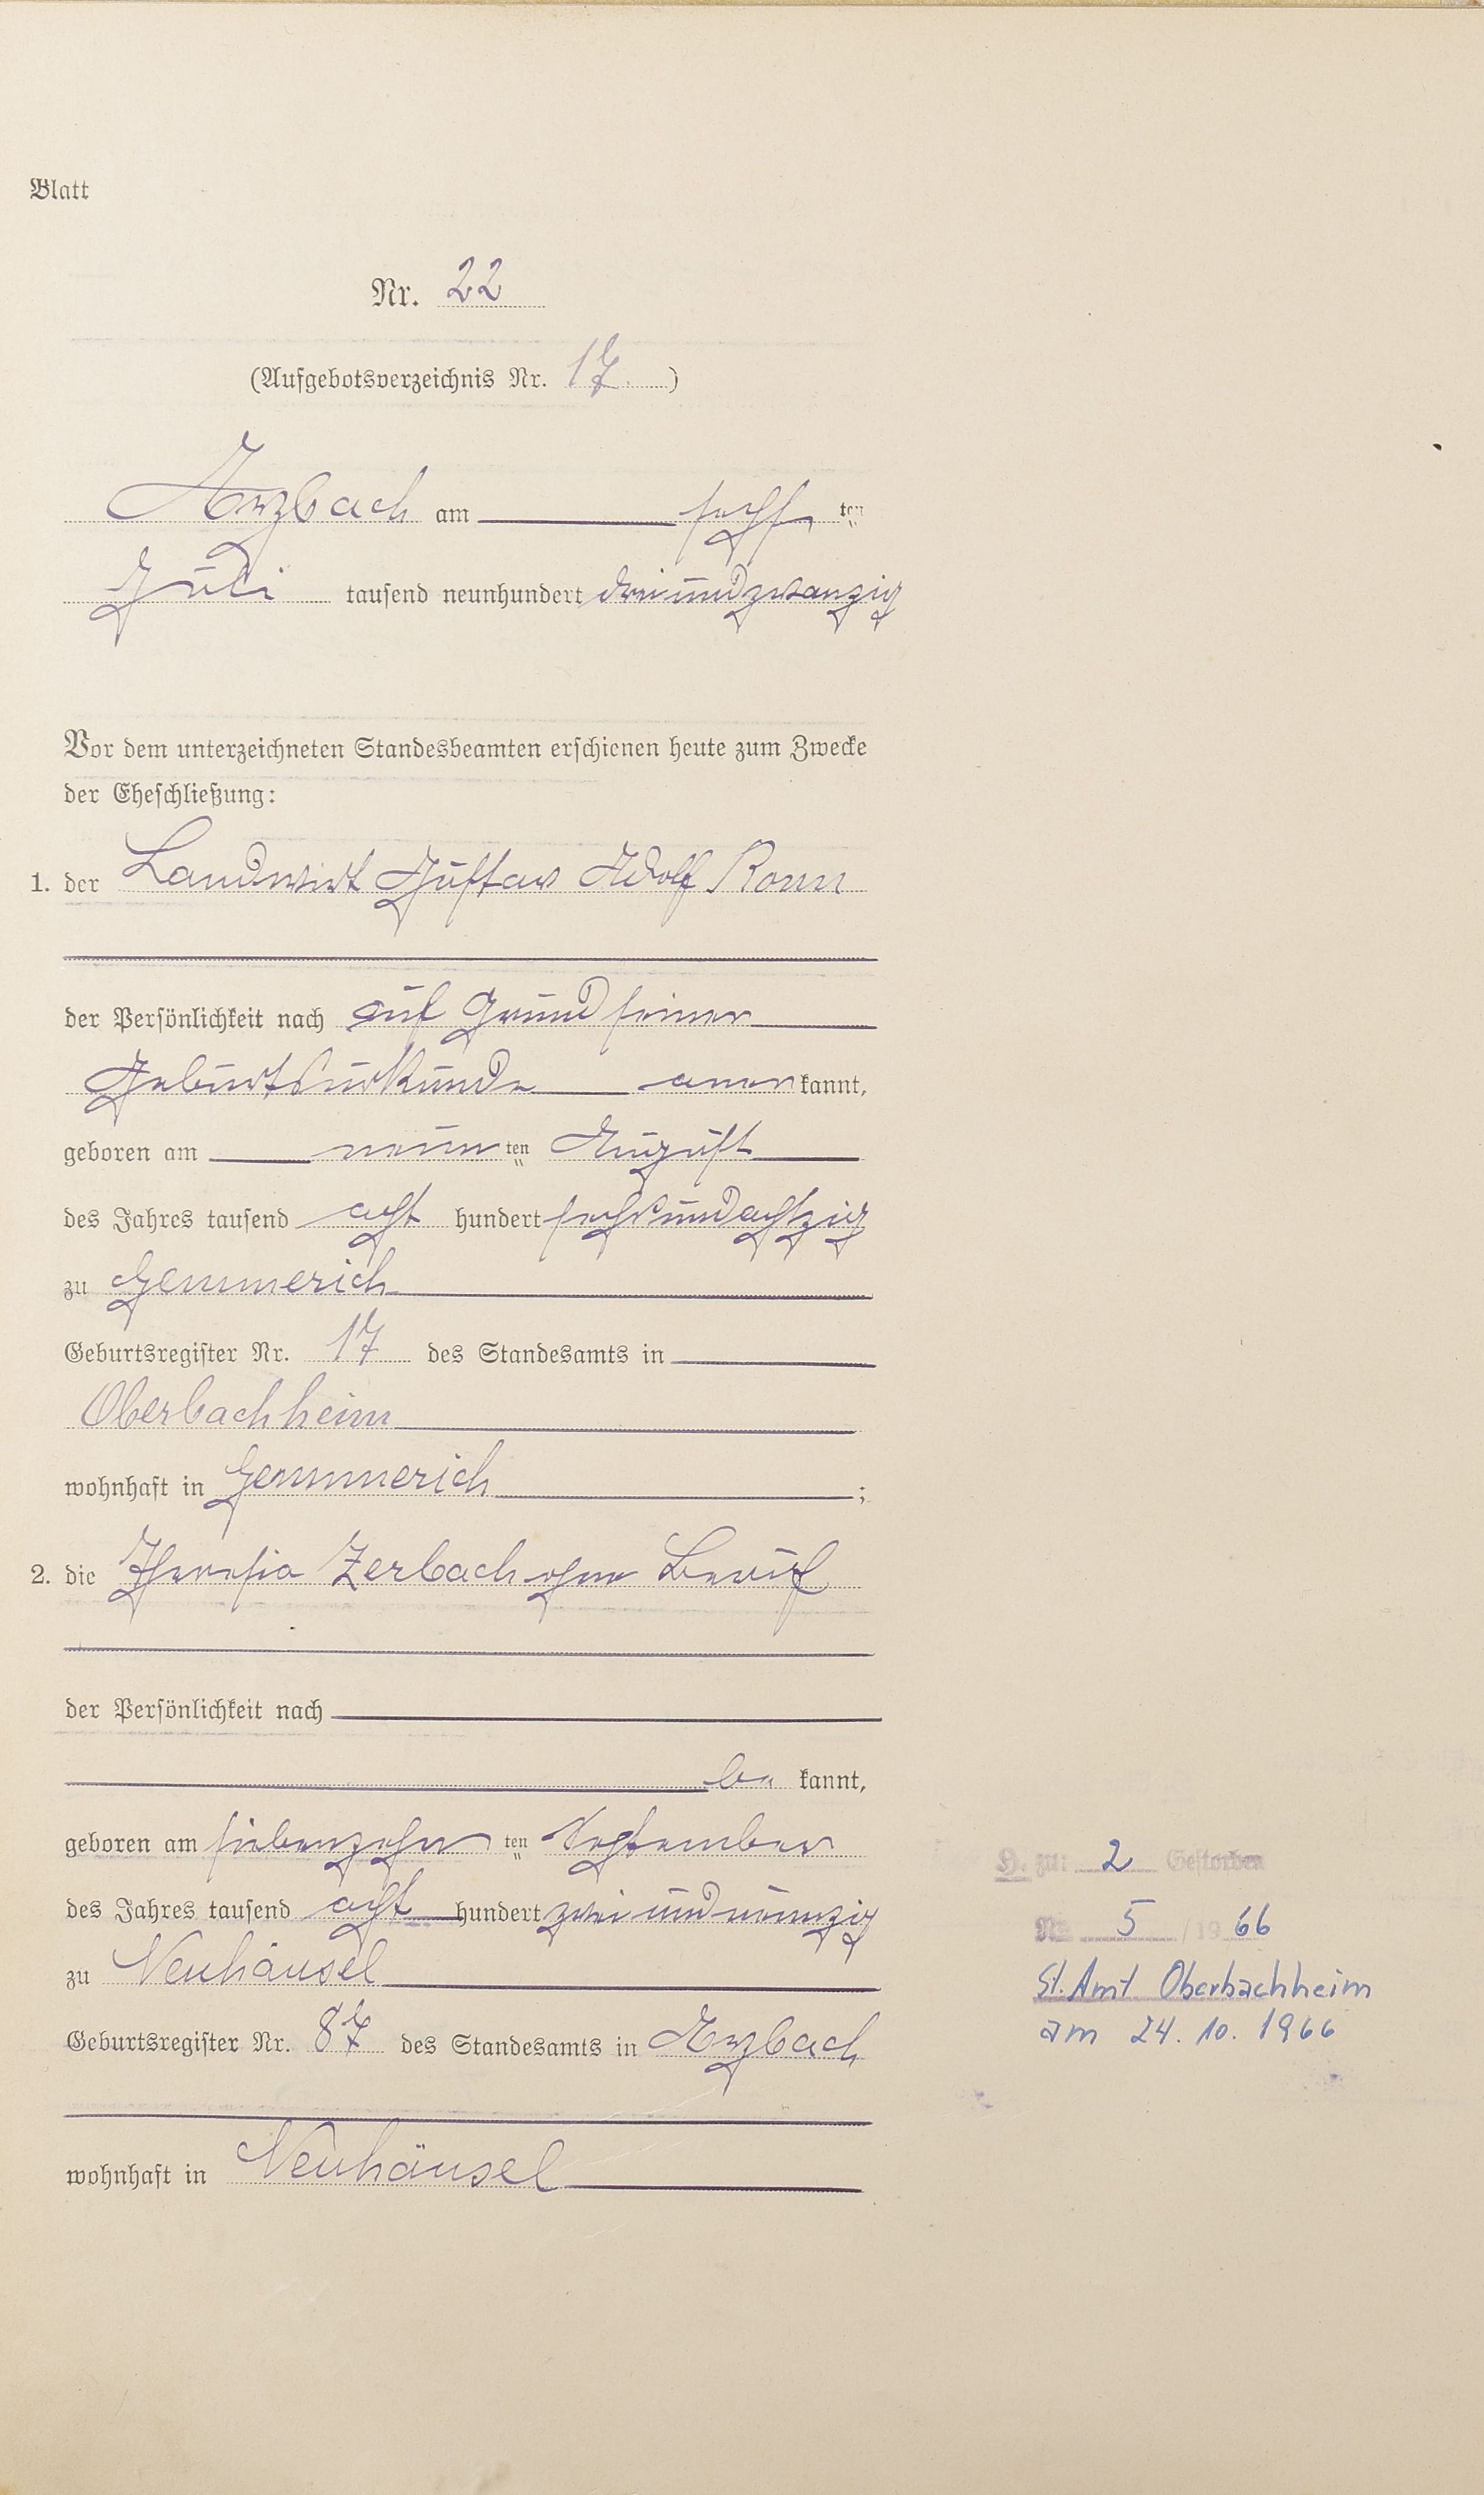 Blatt
Nr. 22
(Aufgebotsverzeichnis Nr. 17)
Arzbach am sechsten
Juli tausend neunhundert dreiundzwanzig
Vor dem unterzeichneten Standesbeamten erschienen heute zum Zwecke
der Eheschließung:
1. der Landwirt Gustav Adolf Romn
der Persönlichkeit nach auf Grund seiner
Geburtsurkunde anerkannt,
geboren am neunten August
des Jahres tausend acht hundert sechsundachtzig
zu Gemmerich
Geburtsregister Nr. 17 des Standesamts in
Oberbachheim
wohnhaft in Gemmerich;
2. die Theresia Zerbach ohne Beruf
der Persönlichkeit nach
bekannt,
geboren am siebenzehnten September
des Jahres tausend acht hundert zwei und neunzig
zu Neuhäusel
Geburtsregister Nr. 87 des Standesamts in Arzbach
wohnhaft in Neuhäusel
H. zu: 2 Gestorben
Nr. 5 / 1966
St. Amt Oberbachheim
am 24. 10. 1966